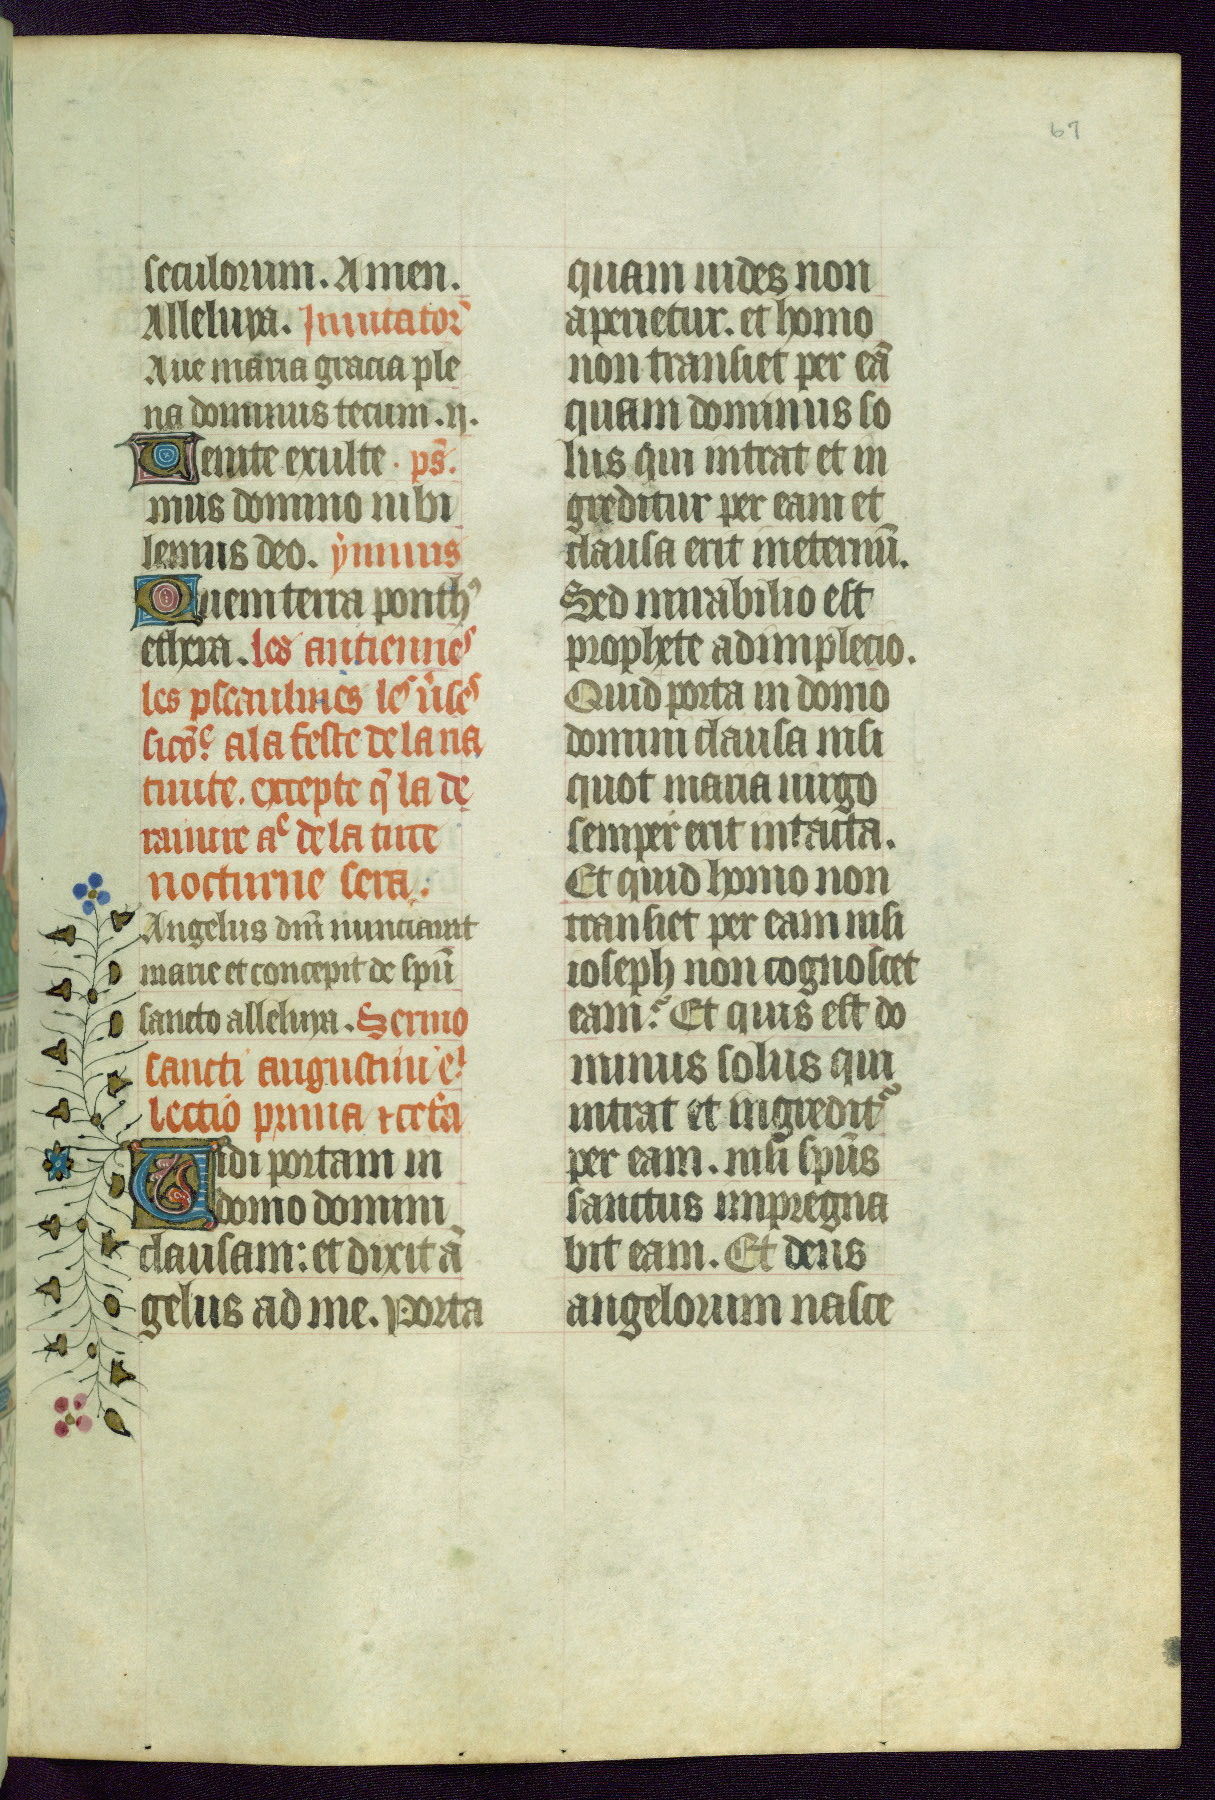 67
seculorum. Amen.
Alleluya. Inuitator̄
Aue maria gracia ple
na dominus tecum. ij.
Uenite exulte. ps̄.
mus domino iubi
lemus deo. ÿmnus
Quem terra ponthꝰ
ethera. les antiennes
les pseaulmes les ūses
sicōe a la feste de la na
tiuite. excepte q̄ la de
rainire ae de la tirce
nocturne sera.
Angelus dn̄i nunciauit
marie et concepit de spū
sancto alleluya. Sermo
sancti augustini e
lectio prima
Uidi portam in
domo domini
clausam: et dixit ā
gelus ad me. Porta
quam uides non
aperietur. et homo
non transiet per eā
quam dominus so
lus qui intrat et in
greditur per eam et
clausa erit ineternū.
Sed mirabilio est
prophete adimplecio.
Quid porta in domo
domini clausa nisi
quot maria uirgo
semper erit intacta.
Et quid homo non
transiet per eam nisi
ioseph non cognoscet
eam. Et quis est do
minus solus qui
intrat et ingredit᷑
per eam. nisi spūs
sanctus impregna
bit eam. Et deus
angelorum nasce